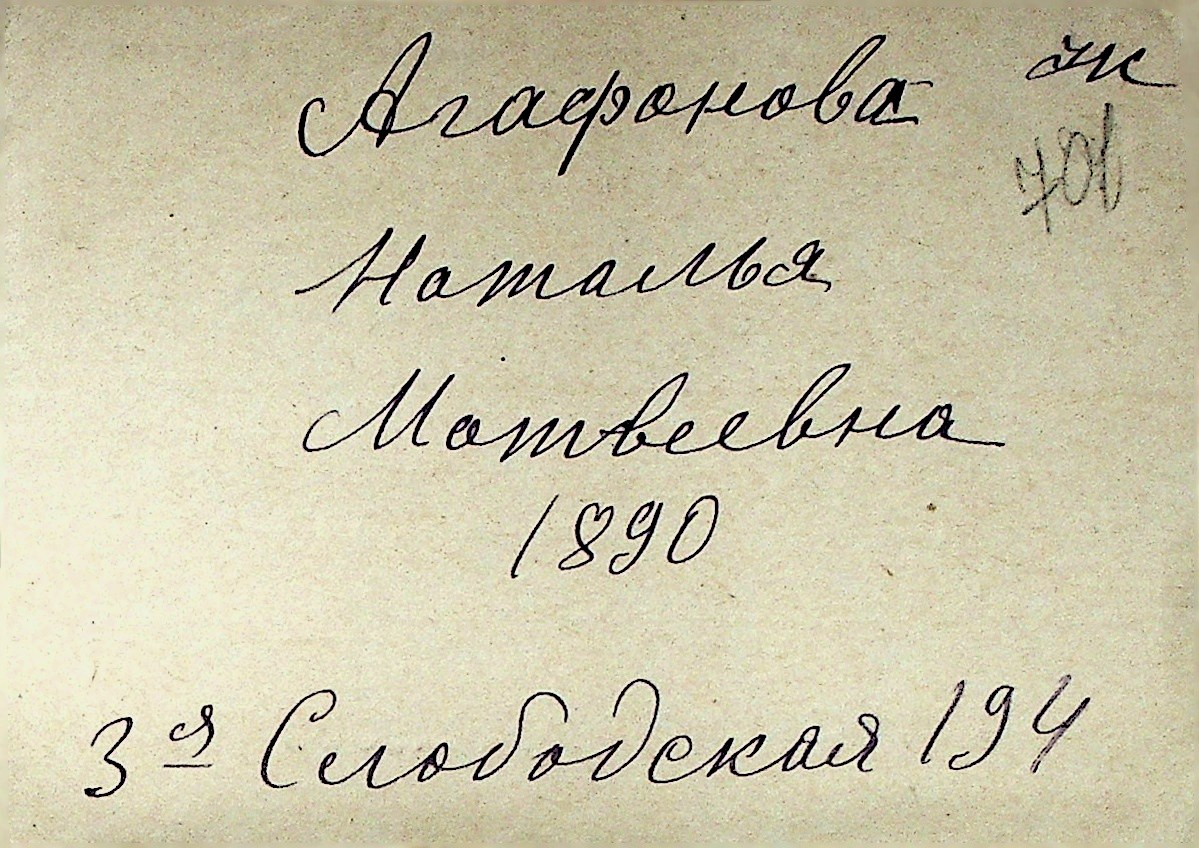 Агафонова
Наталья
Матвеевна
1890
3я Слободская 194